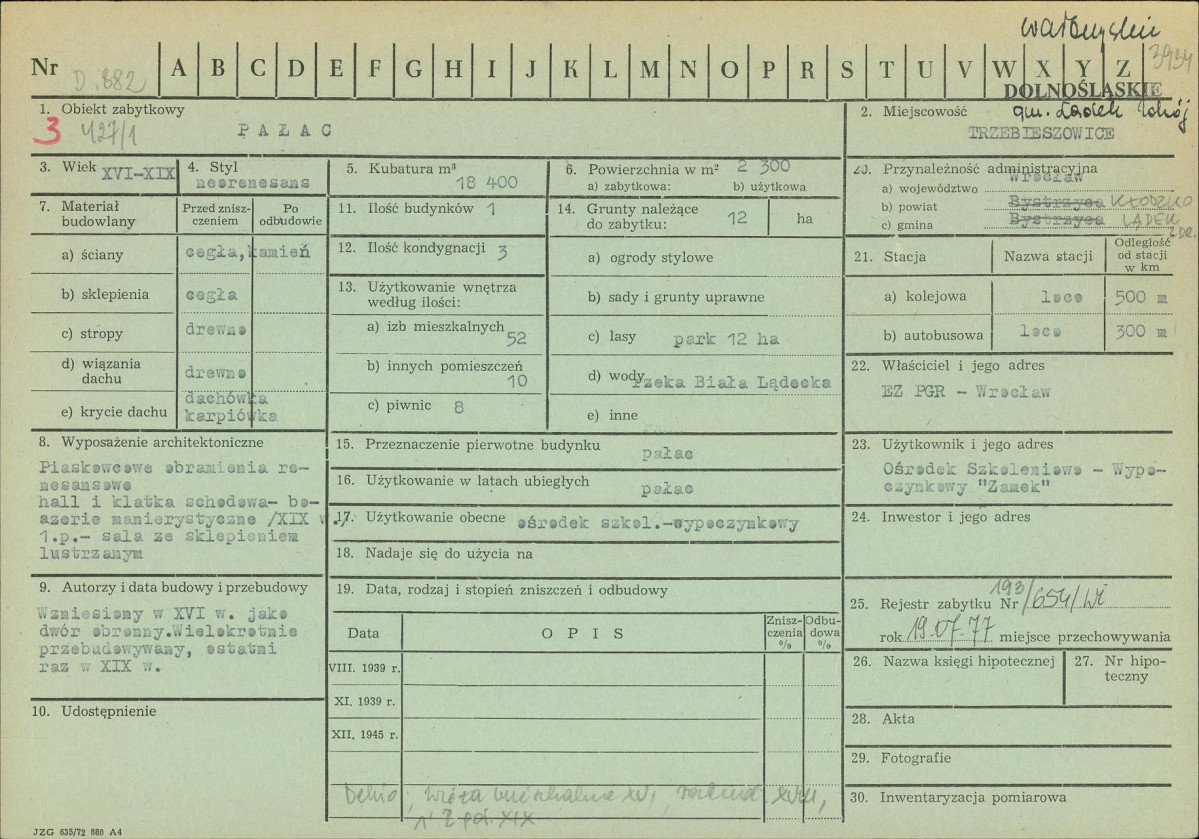 Nr D.882 A B C D E F G H I J K L M N O P R S T U V W X Y Z 3934
DOLNOŚLĄSKIE
1. Obiekt zabytkowy
3 427/1
PAŁAC
2. Miejscowość gm. Lądek Zdrój
TRZEBIESZOWICE
3. Wiek XVI-XIX
4. Styl
neorenesans
5. Kubatura m³
18 400
6. Powierzchnia w m² 2 300
a) zabytkowa: b) użytkowa
20. Przynależność administracyjna
a) województwo Wrocław
b) powiat Bystrzyca KŁODZKO
c) gmina Bystrzyca LĄDEK
ZDR.
7. Materiał
budowlany
Przed znisz-
czeniem
Po
odbudowie
a) ściany cegła, kamień
b) sklepienia cegła
c) stropy drewno
d) wiązania
dachu drewno
e) krycie dachu dachówka
karpiówka
11. Ilość budynków 1
12. Ilość kondygnacji 3
13. Użytkowanie wnętrza
według ilości:
a) izb mieszkalnych
52
b) innych pomieszczeń
10
c) piwnic 8
14. Grunty należące
do zabytku: 12 ha
a) ogrody stylowe
b) sady i grunty uprawne
c) lasy park 12 ha
d) wody rzeka Biała Lądecka
e) inne
21. Stacja Nazwa stacji Odległość
od stacji
w km
a) kolejowa loco 500 m
b) autobusowa loco 300 m
22. Właściciel i jego adres
EZ PGR - Wrocław
8. Wyposażenie architektoniczne
Piaskowcowe obramienia re-
nesansowe
hall i klatka schodowa- bo-
azerie manierystyczne /XIX w./
1.p.- sala ze sklepieniem
lustrzanym
15. Przeznaczenie pierwotne budynku
pałac
16. Użytkowanie w latach ubiegłych
pałac
17. Użytkowanie obecne ośrodek szkol.-wypoczynkowy
18. Nadaje się do użycia na
23. Użytkownik i jego adres
Ośrodek Szkoleniowo - Wypo-
czynkowy "Zamek"
24. Inwestor i jego adres
9. Autorzy i data budowy i przebudowy
Wzniesiony w XVI w. jako
dwór obronny.Wielokrotnie
przebudowywany, ostatni
raz w XIX w.
10. Udostępnienie
19. Data, rodzaj i stopień zniszczeń i odbudowy
Data OPIS Znisz-
czenia
% Odbu-
dowa
%
VIII. 1939 r.
XI. 1939 r.
XII. 1945 r.
25. Rejestr zabytku Nr 193/654/Wł
rok 19.07.77 miejsce przechowywania
26. Nazwa księgi hipotecznej
27. Nr hipo-
teczny
28. Akta
29. Fotografie
30. Inwentaryzacja pomiarowa
2 poł. XIX
JZG 635/72 880 A4